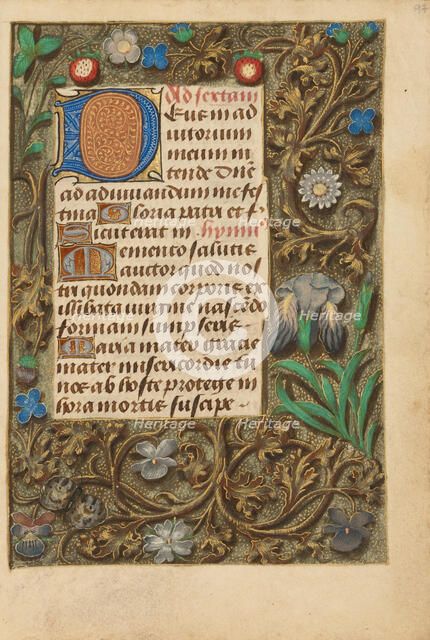 97
Ad sextam
Deus in ad
iutorium
meum in
tende Dne
ad adiuuandum me fes
tina Gloria patri et f
Sicut erat in hymn
Memento salutis
auctor quod nos
tri quondam corporis ex
illibata uirgine nascēdo
formam sumpseris
Maria mater gracie
mater misericordie tu
nos ab hoste protege in
hora mortis suscipe
Heritage
Heritage
Heritage
Heritage
Heritage
Heritage
Heritage
Heritage